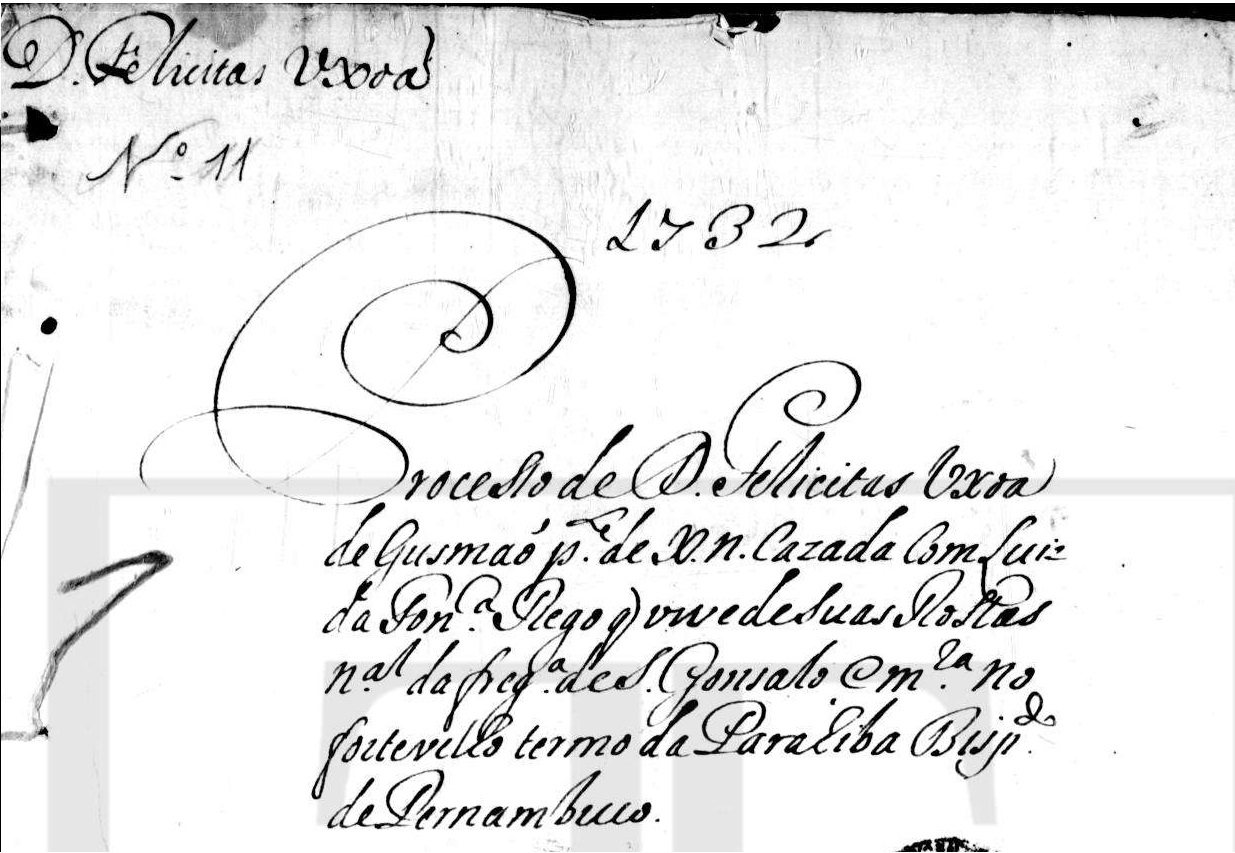 D. Felicitas Vxoa
Nº 11
1732
Processo de D. Felicitas Vxoa
de Gusmaó p.te de X.N. Cazada Com Luiz
da Fon.ca Rego q vive de suas Rossas
n.al da freg.a de S. Gonsalo e m.ra no
forte vello termo da Paraiba Bisp.do
de Pernambuco.